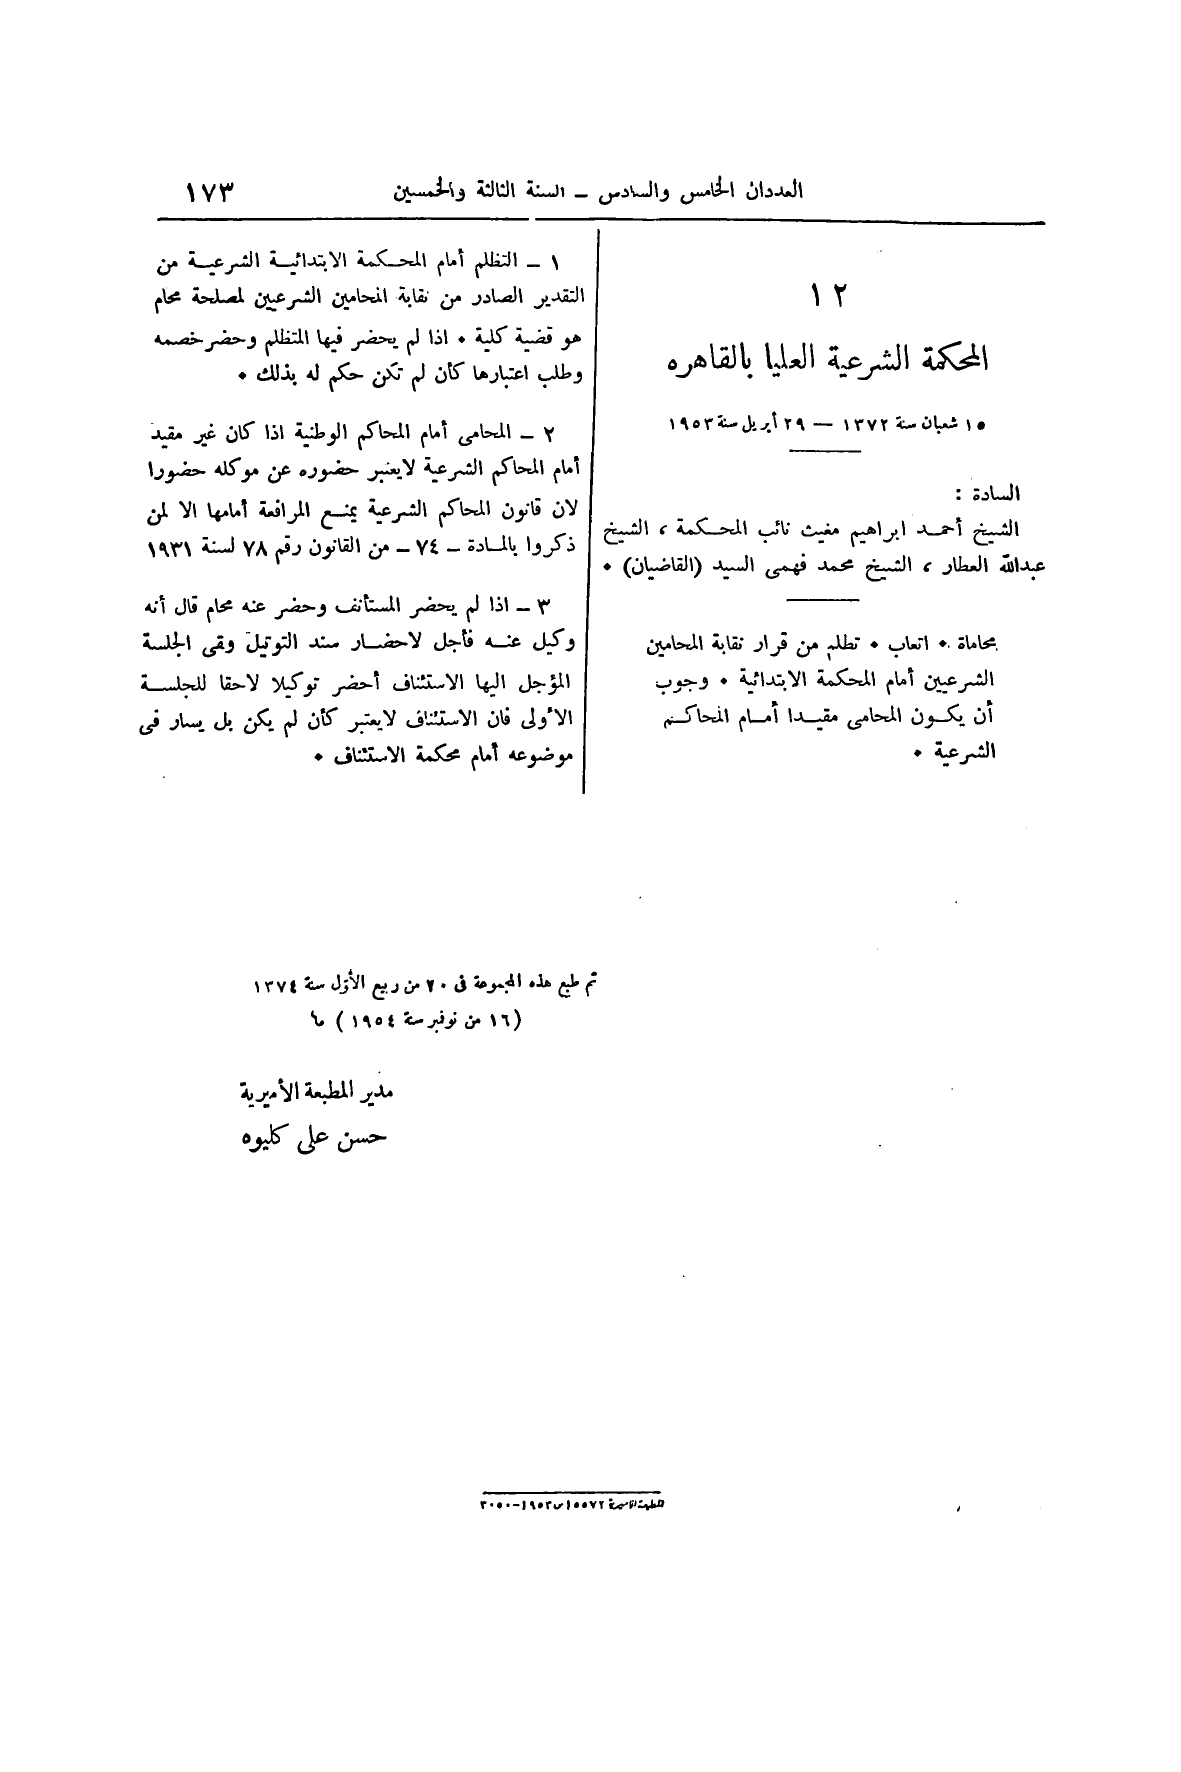 العددان الخامس والسادس — السنة الثالثة والخمسين ١٧٣
١٢
المحكمة الشرعية العليا بالقاهره
١٥ شعبان سنة ١٣٧٢ — ٢٩ أبريل سنة ١٩٥٣
السادة :
الشيخ أحمد ابراهيم مغيث نائب المحكمة ، الشيخ
عبدالله العطار ، الشيخ محمد فهمى السيد (القاضيان) •
محاماة • اتعاب • تظلم من قرار نقابة المحامين
الشرعيين أمام المحكمة الابتدائية • وجوب
أن يكون المحامى مقيدا أمام المحاكم
الشرعية •
١ — التظلم أمام المحكمة الابتدائية الشرعية من
التقدير الصادر من نقابة المحامين الشرعيين لمصلحة محام
هو قضية كلية • اذا لم يحضر فيها المتظلم وحضر خصمه
وطلب اعتبارها كأن لم تكن حكم له بذلك •
٢ — المحامى أمام المحاكم الوطنية اذا كان غير مقيد
أمام المحاكم الشرعية لايعتبر حضوره عن موكله حضورا
لان قانون المحاكم الشرعية يمنع المرافعة أمامها الا لمن
ذكروا بالمادة — ٧٤ — من القانون رقم ٧٨ لسنة ١٩٣١
٣ — اذا لم يحضر المستأنف وحضر عنه محام قال أنه
وكيل عنه فأجل لاحضار سند التوتيل وفى الجلسة
المؤجل اليها الاستئناف أحضر توكيلا لاحقا للجلسة
الأولى فان الاستئناف لايعتبر كأن لم يكن بل يسار فى
موضوعه أمام محكمة الاستئناف •
تم طبع هذه المجموعة فى ٢٠ من ربيع الأول سنة ١٣٧٤
(١٦ من نوفمبر سنة ١٩٥٤) م
مدير المطبعة الأميرية
حسن على كليوه
المطبعة الأميرية ١٥٥٧٢ س ١٩٥٣-٣٠٥٠